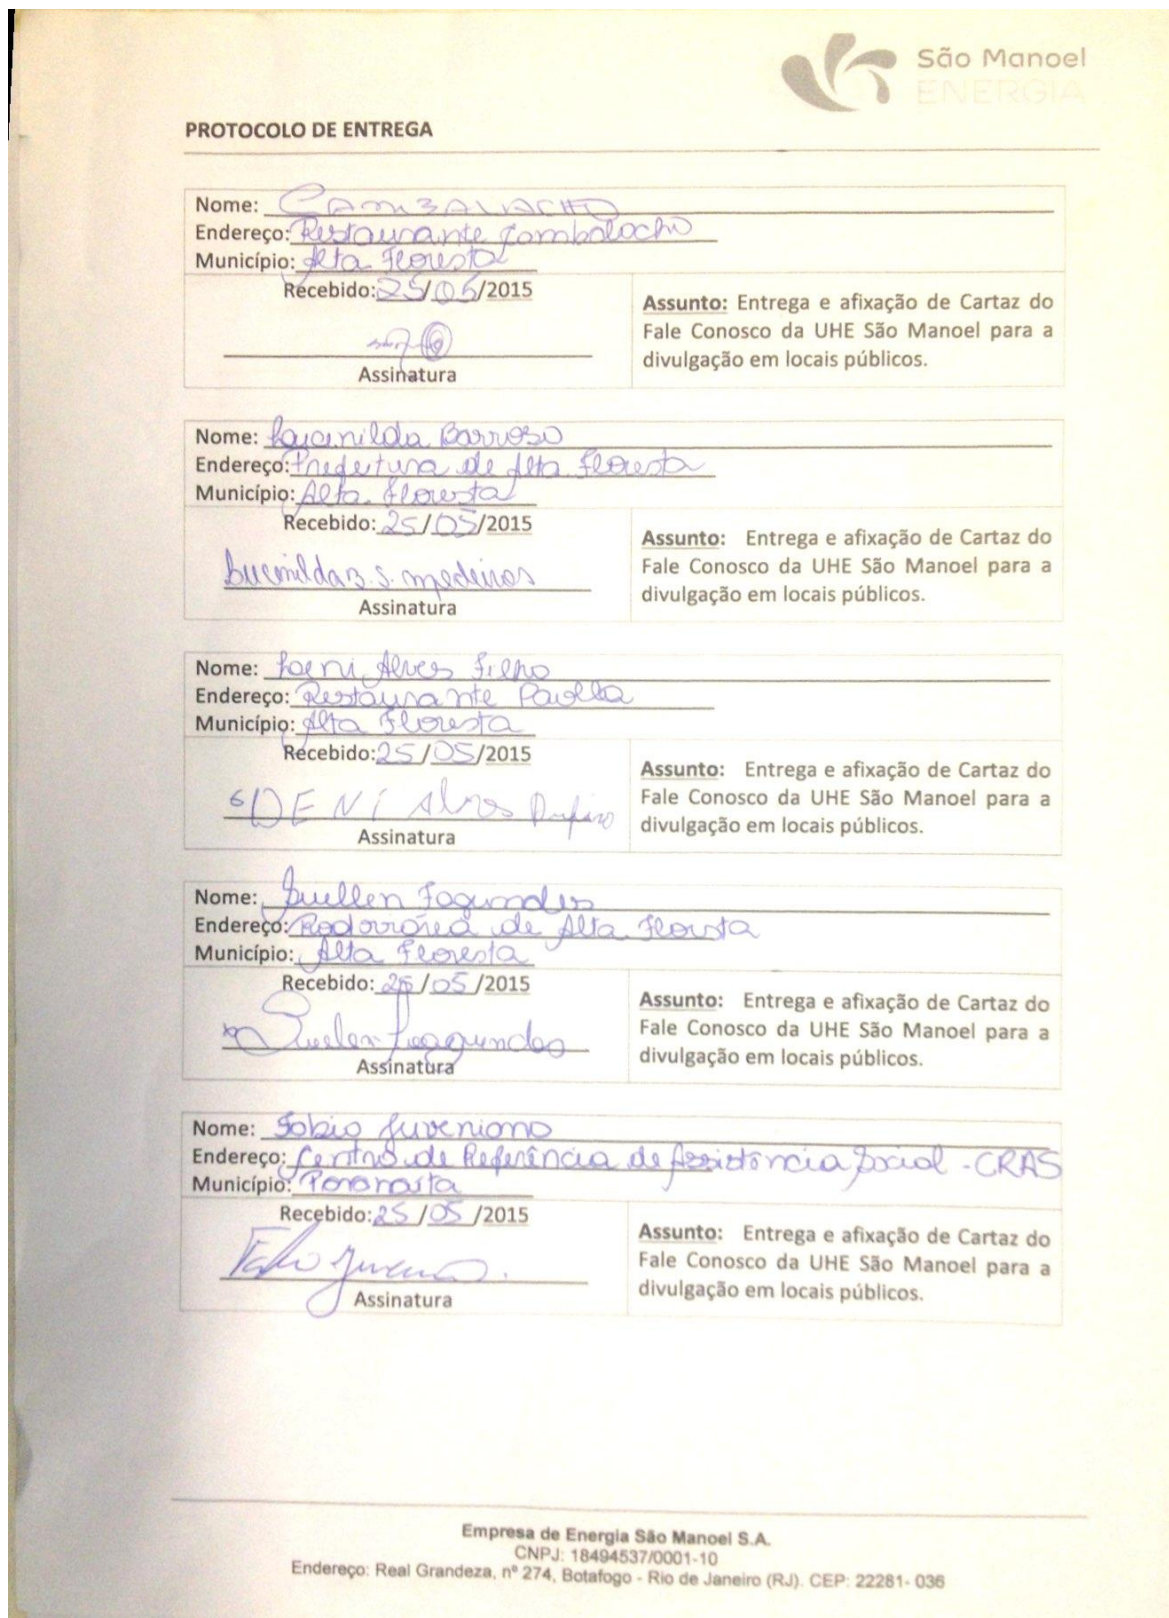 São Manoel
ENERGIA
PROTOCOLO DE ENTREGA
Nome: CAMBALACHO
Endereço: Restaurante Cambalacho
Município: Alta Floresta
Recebido: 25/05/2015
Assinatura
Assunto: Entrega e afixação de Cartaz do
Fale Conosco da UHE São Manoel para a
divulgação em locais públicos.
Nome: Lucenilda Barroso
Endereço: Prefeitura de Alta Floresta
Município: Alta Floresta
Recebido: 25/05/2015
Lucenilda B. S. medeiros
Assinatura
Assunto: Entrega e afixação de Cartaz do
Fale Conosco da UHE São Manoel para a
divulgação em locais públicos.
Nome: Alves Filho
Endereço: Restaurante Paella
Município: Alta Floresta
Recebido: 25/05/2015
DENI Alves
Assinatura
Assunto: Entrega e afixação de Cartaz do
Fale Conosco da UHE São Manoel para a
divulgação em locais públicos.
Nome: Suellen Fagundes
Endereço: Rodoviárea de Alta Floresta
Município: Alta Floresta
Recebido: 25/05/2015
Suelen Fagundes
Assinatura
Assunto: Entrega e afixação de Cartaz do
Fale Conosco da UHE São Manoel para a
divulgação em locais públicos.
Nome: Fabio Juveniano
Endereço: Centro de Referência de Assistência Social - CRAS
Município: Paranaita
Recebido: 25/05/2015
Assinatura
Assunto: Entrega e afixação de Cartaz do
Fale Conosco da UHE São Manoel para a
divulgação em locais públicos.
Empresa de Energia São Manoel S.A.
CNPJ: 18494537/0001-10
Endereço: Real Grandeza, nº 274, Botafogo - Rio de Janeiro (RJ). CEP: 22281- 036